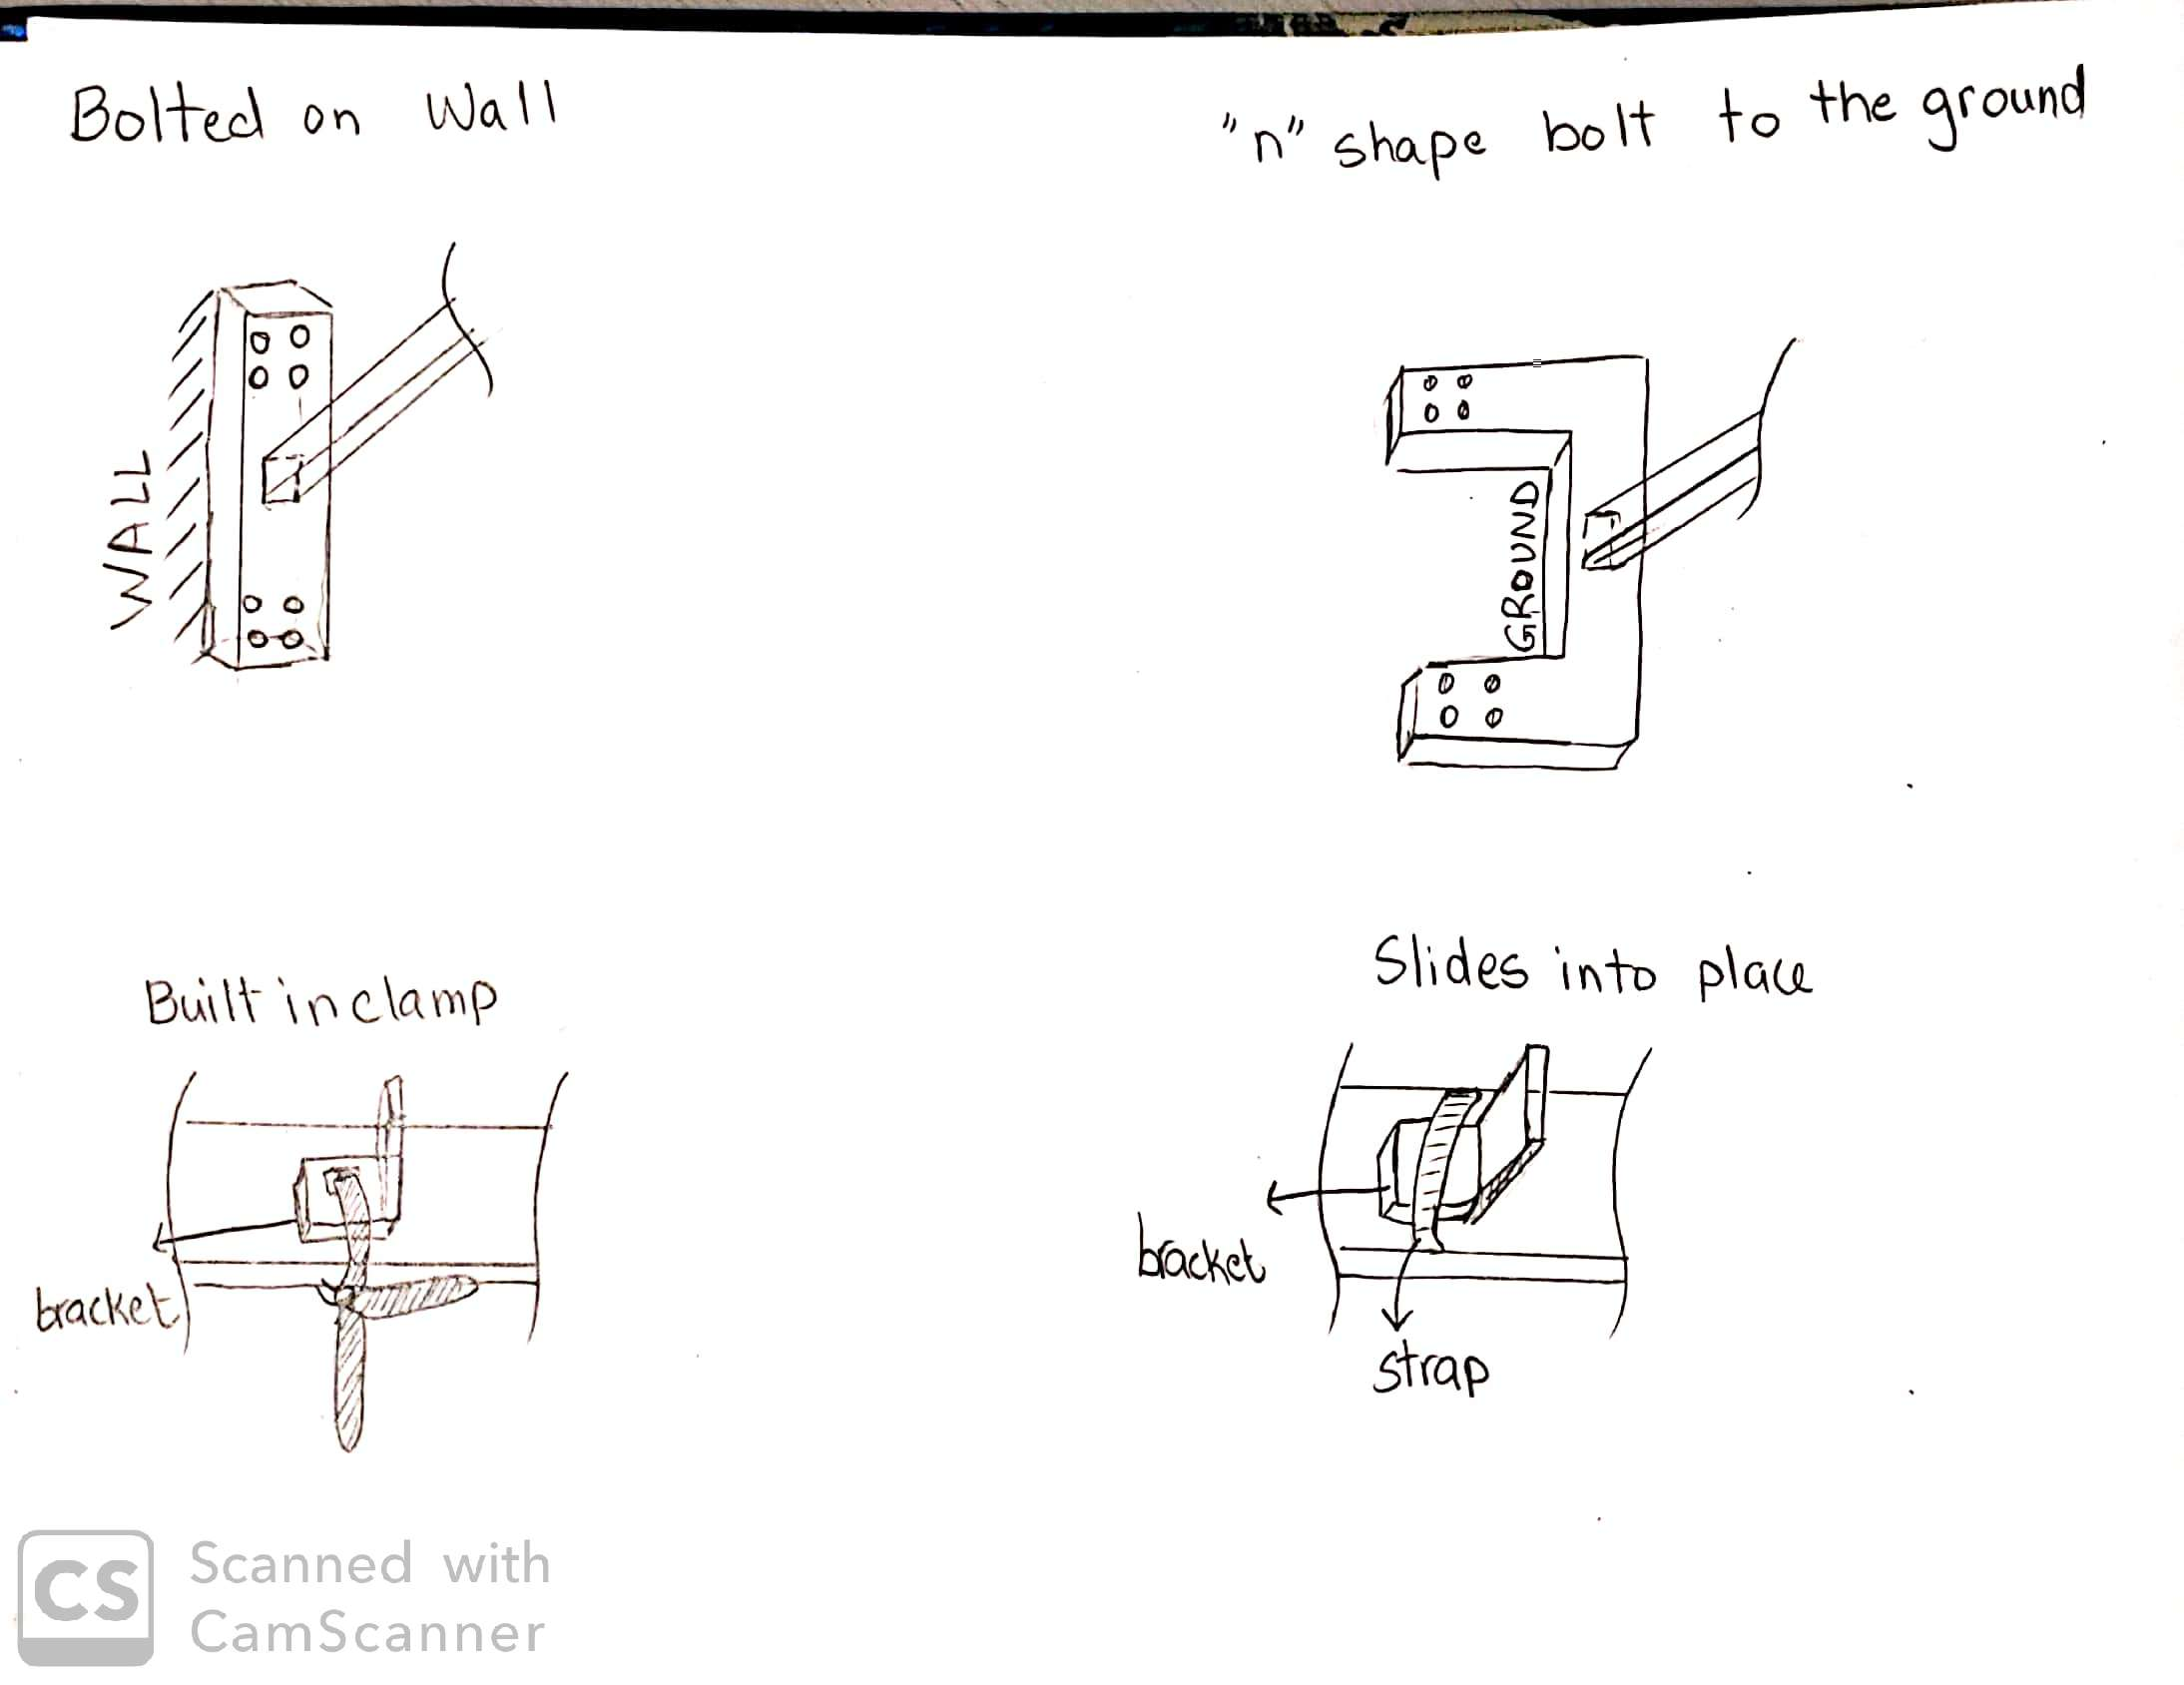 Bolted on Wall
"n" shape bolt to the ground
WALL
GROUND
Built in clamp
Slides into place
bracket
bracket
strap
CS
Scanned with
CamScanner